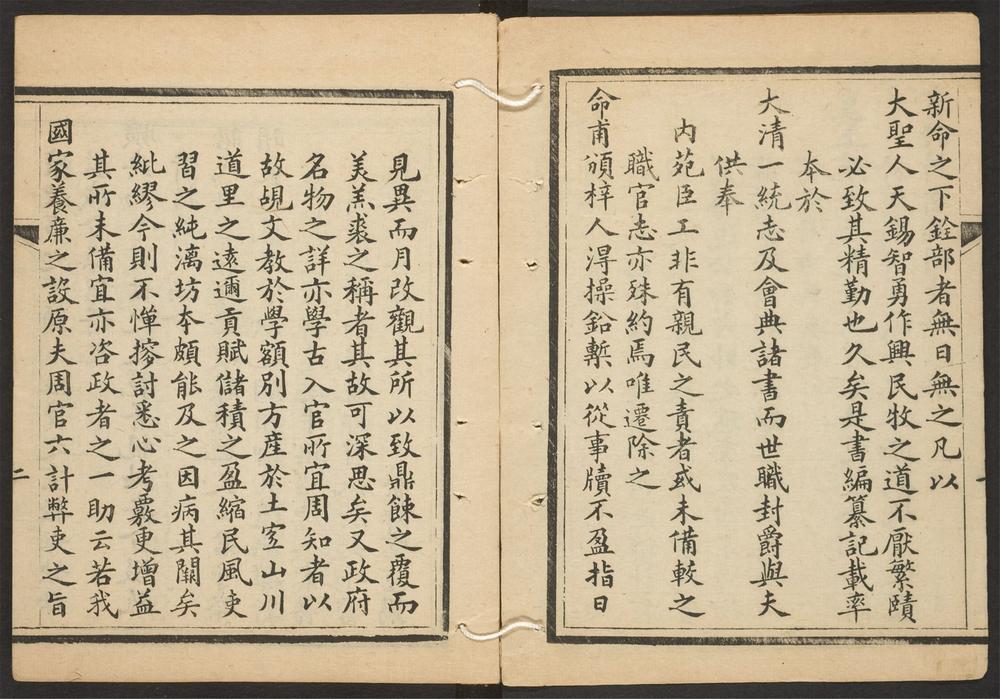 新命之下銓部者無日無之凡以
大聖人天錫智勇作興民牧之道不厭繁賾
必致其精勤也久矣是書編纂記載率
本於
大清一統志及會典諸書而世職封爵與夫
供奉
內苑臣工非有親民之責者或未備較之
職官志亦殊約焉唯遷除之
命甫頒梓人淂操鉛槧以從事牘不盈指日
見異而月改觀其所以致鼎餗之覆而
羙羔裘之稱者其故可深思矣又政府
名物之詳亦學古入官所宜周知者以
故覘文教於學額別方産於土宐山川
道里之逺邇貢賦儲積之盈縮民風吏
習之純漓坊本頗能及之因病其闕矣
紕繆今則不憚搜討悉心考覈更增益
其所未備宜亦咨政者之一助云若我
國家養廉之設原夫周官六計弊吏之旨
一
二